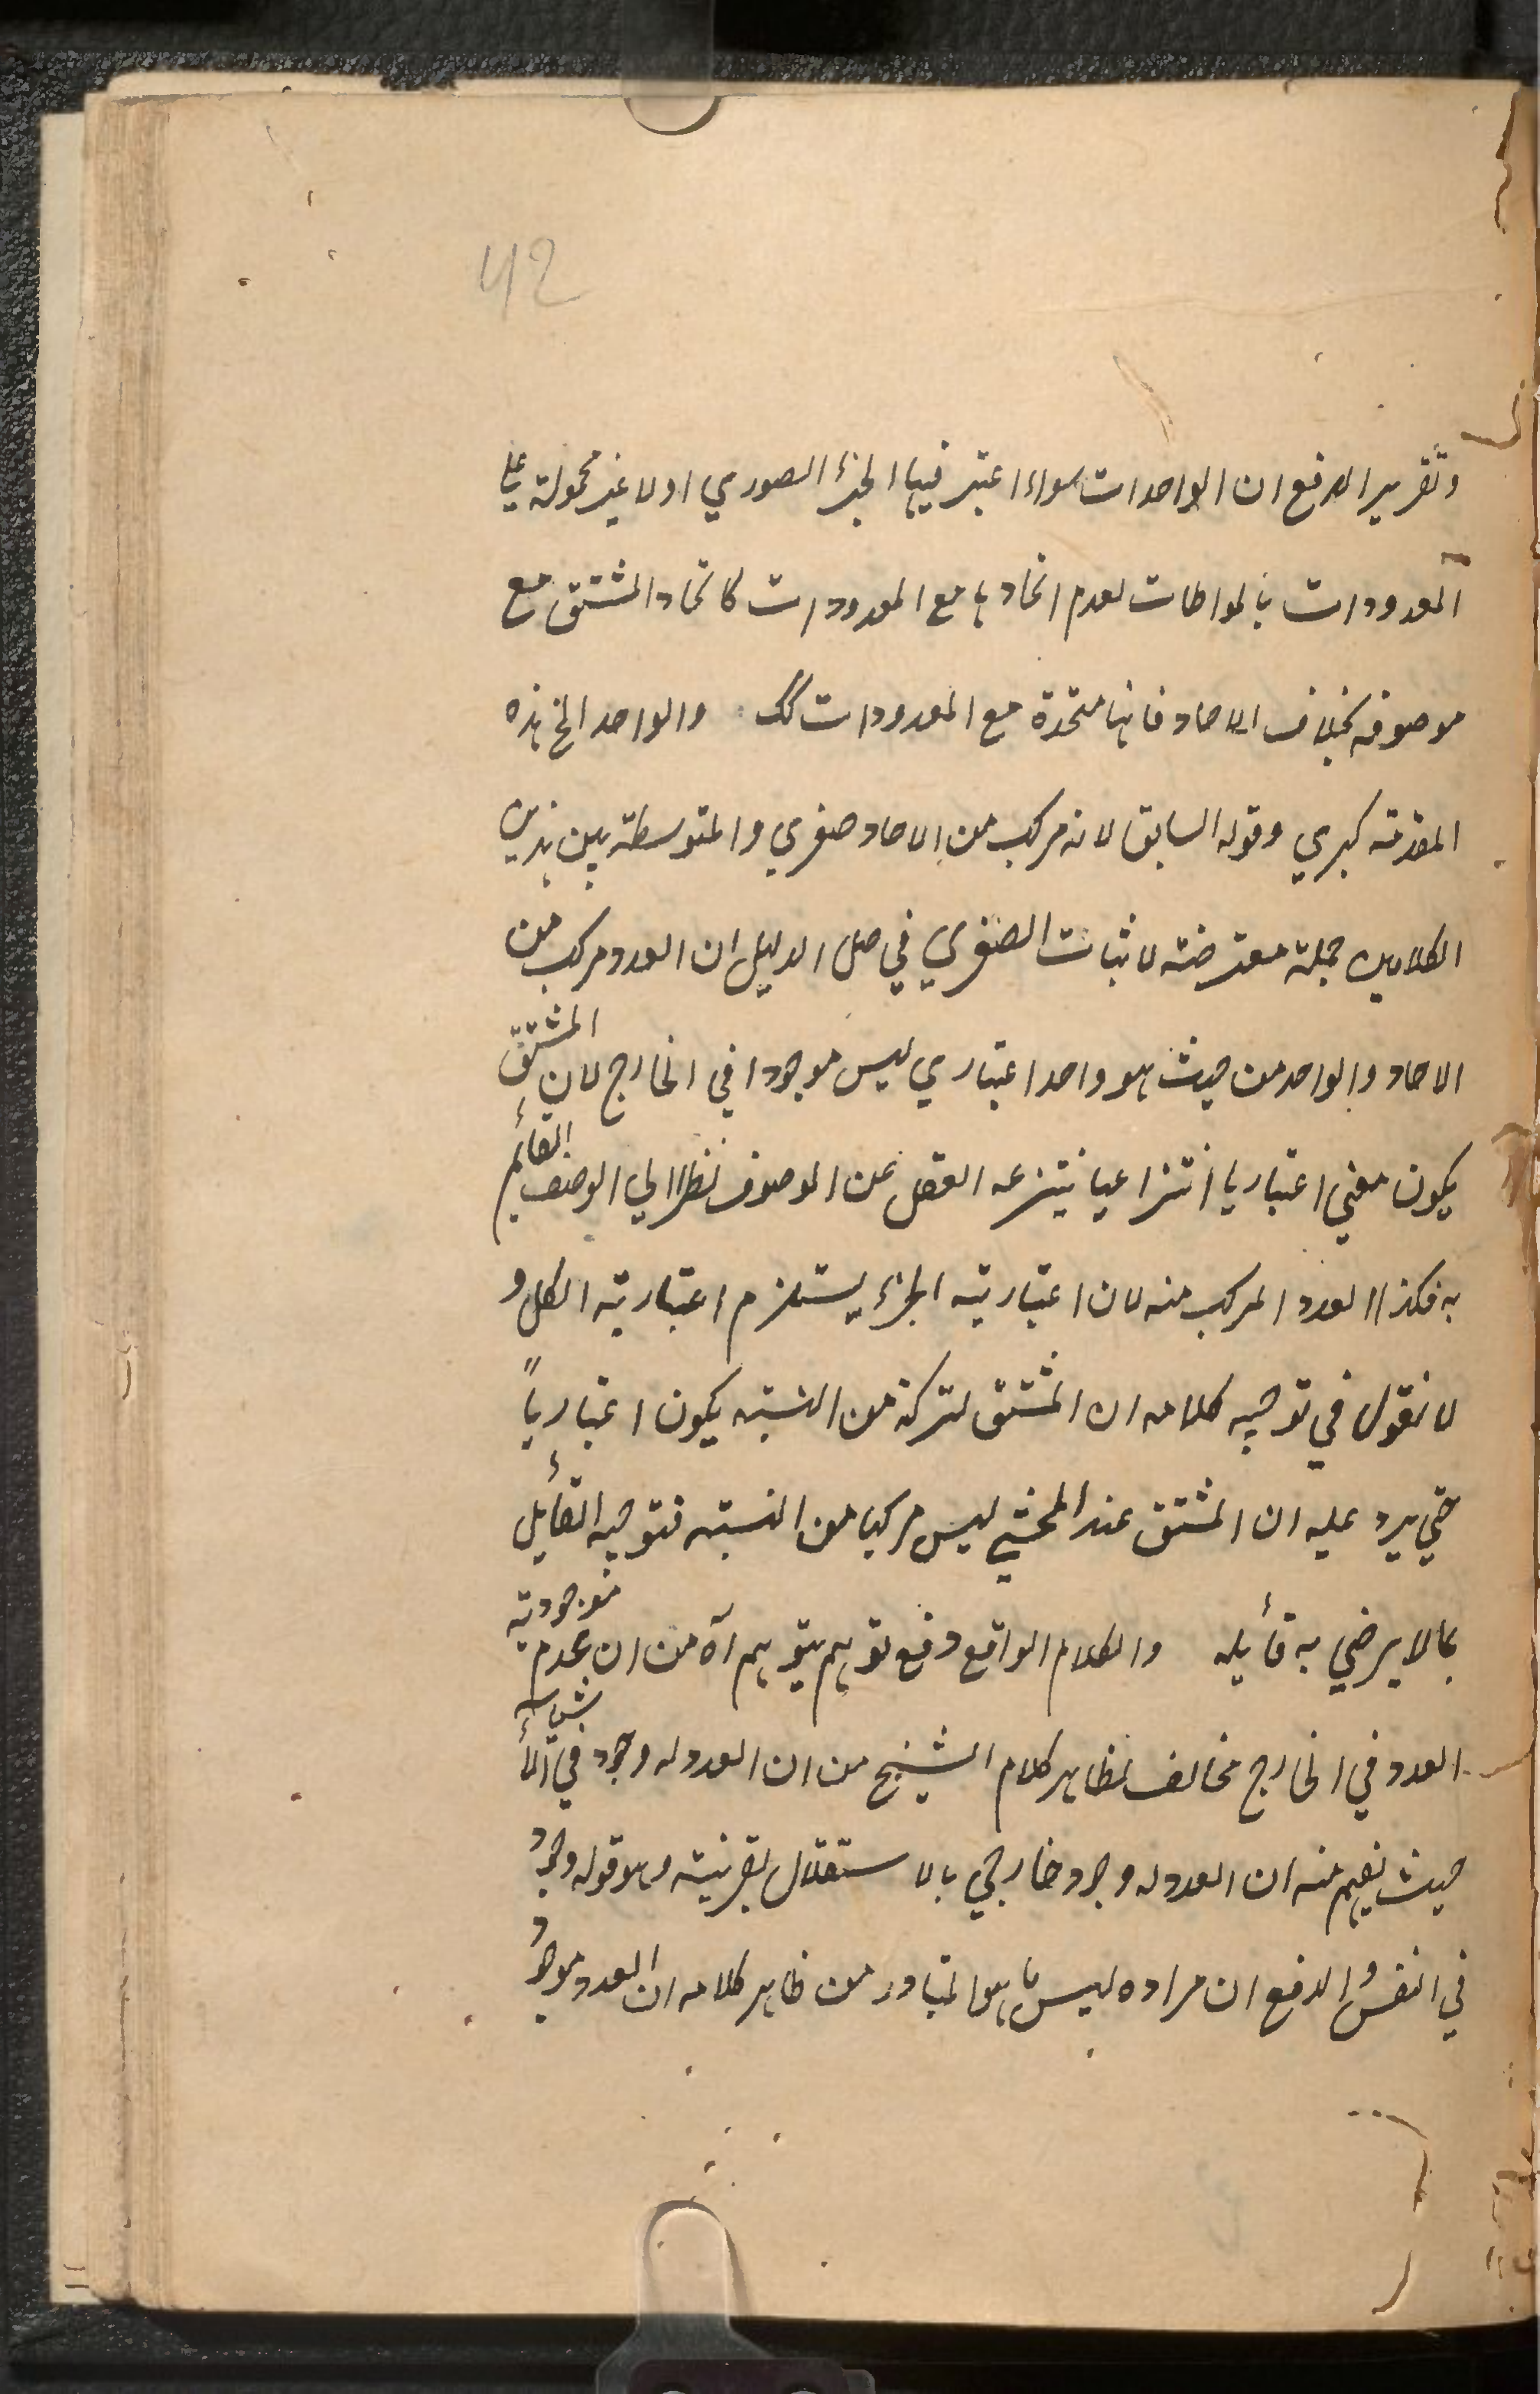 42
وتقرير الدفع ان الواحدات سواء اعتبر فيها الجزء الصوري او لا غير محمولة على
المعدودات بالمواطات لعدم اتحادها مع المعدودات كاتحاد المشتق مع
موصوفه بخلاف الاحاد فانها متحدة مع المعدودات كك والواحد الخ هذه
المقدمته كبري وقوله السابق لانه مركب من الاحاد صغري والمتوسطة بين هذين
الكلامين جملة معترضته لاثبات الصغري في صل الدليل ان العدد مركب من
الاحاد والواحد من حيث هو واحد اعتباري ليس موجودا في الخارج لان المشتق
يكون معني اعتباريا انتزاعيا ينتزعه العقل عن الموصوف نظرا الي الوصف القائم
به فكذا العدد المركب منه لان اعتباريته الجزء يستلزم اعتباريته الكل و
لا نقول في توجيه كلامه ان المشتق لتركبه من النسبته يكون اعتبارياً
حتي يرد عليه ان المشتق عند المحشي ليس مركبا من النسبته فتوجيه القائل
بما لا يرضي به قائله والكلام الواقع دفع توهم يتوهم آه من ان عدم موجودية
العدد في الخارج مخالف لظاهر كلام الشيخ من ان العدد له وجود في الأشياء
حيث يفهم منه ان العدد له وجود خارجي بالاستقلال بقرينته وهو قوله وجود
في النفس والدفع ان مراده ليس ما هو المتبادر من ظاهر كلامه ان العدد موجود